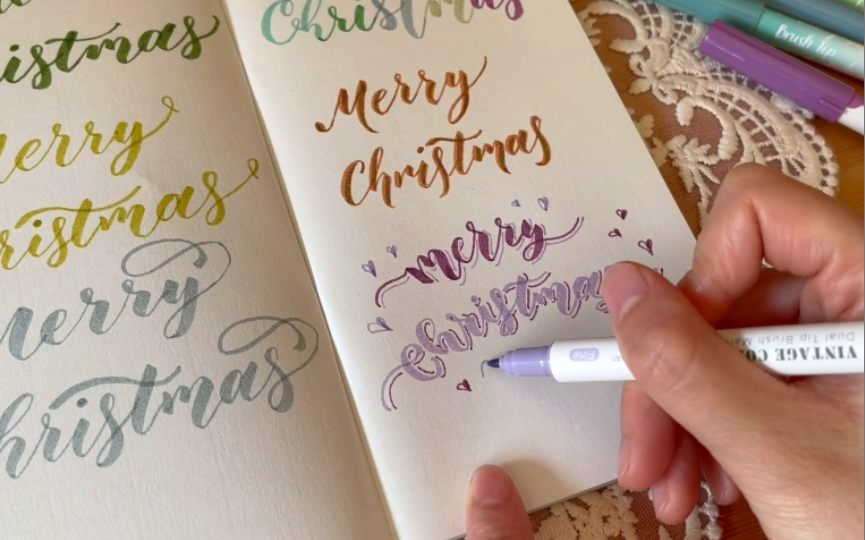 istmas
erry
ristmas
Merry
Christmas
Christmas
Merry
Christmas
merry
Christmas
Brush Tip
Fine
VINTAGE CO
Dual Tip Brush Ma